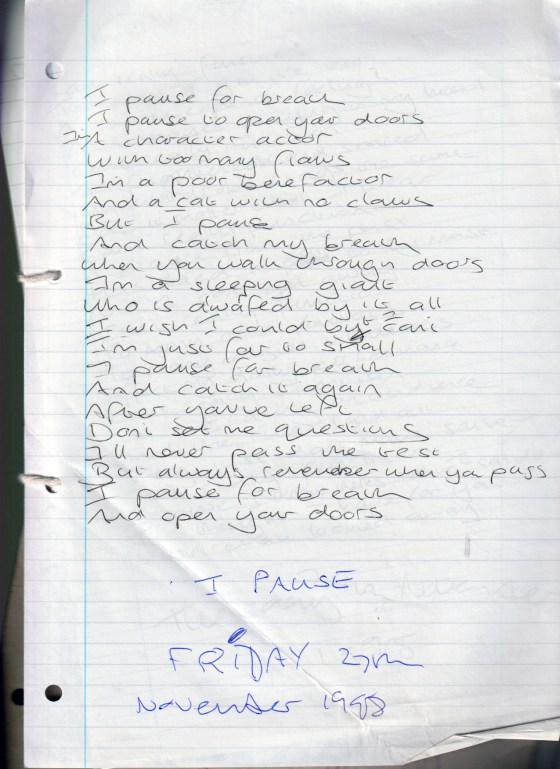 I pause for breath
I pause to open your doors
I'm a character actor
With too many flaws
I'm a poor benefactor
And a cat with no claws
But I pause
And catch my breath
When you walk through doors
I'm a sleeping giant
Who is dwafed by it all
I wish I could but cant
I'm just far to small
I pause for breath
And catch it again
After you've left
Don't set me questions
I'll never pass the test
But always remember when you pass
I pause for breath
And open your doors
I PAUSE
FRIDAY 27th
November 1998